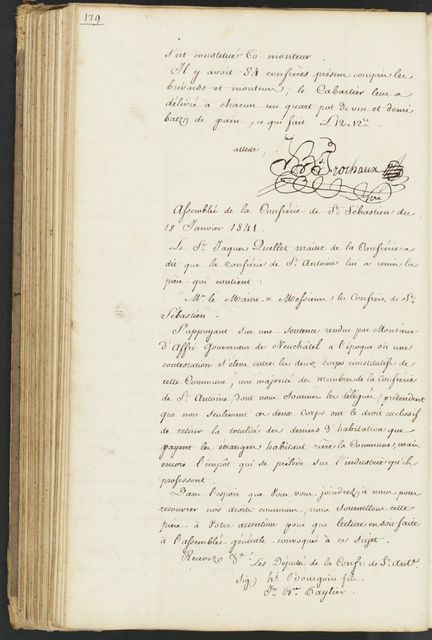 179
s'est constitué Co monteur.
Il y avoit 84 confrères présent compris les
brévards et monteurs; le Cabartier leur a
délivré à chacun un quart pot de vin et demi
batz de pain, ce qui fait L 12.12
atteste,
Trochaux
Assemblée de la Confrérie de St. Sébastien du
Janvier 1841.
Le Sr. Jaques Quellet maitre de la Confrérie a
dit que la confrérie de St. Antoine lui a remis la
pièce qui contient:
Mr. le Maitre & Messieurs les Confrères de St.
Sébastien.
S'appuyant sur une sentence rendue par Monsieur
d'Affri Gouverneur de Neuchâtel à l'époque où une
contestation s'éleva entre les deux corps constitutifs de
cette Commune, une majorité des membres de la confrérie
de St. Antoine, dont nous sommes les délégués, prétendent
que non seulement ces deux Corps ont le droit exclusif
de retirer la totalité des deniers d'habitation que
payent les étrangers habitant rière la Commune, mais
encore l'impôt qui se prélève sur l'industrie qu'ils
professent.
Dans l'espoir que Vous vous joindrez à nous pour
recouvrer nos droits communs, nous soumettons cette
pièce à Votre attention pour que lecture en soit faite
à l'assemblée générale convoquée à ce sujet.
Recevez &a. Les Députés de la Confr. de St. Antne.
Sig) Hi Bourgoin